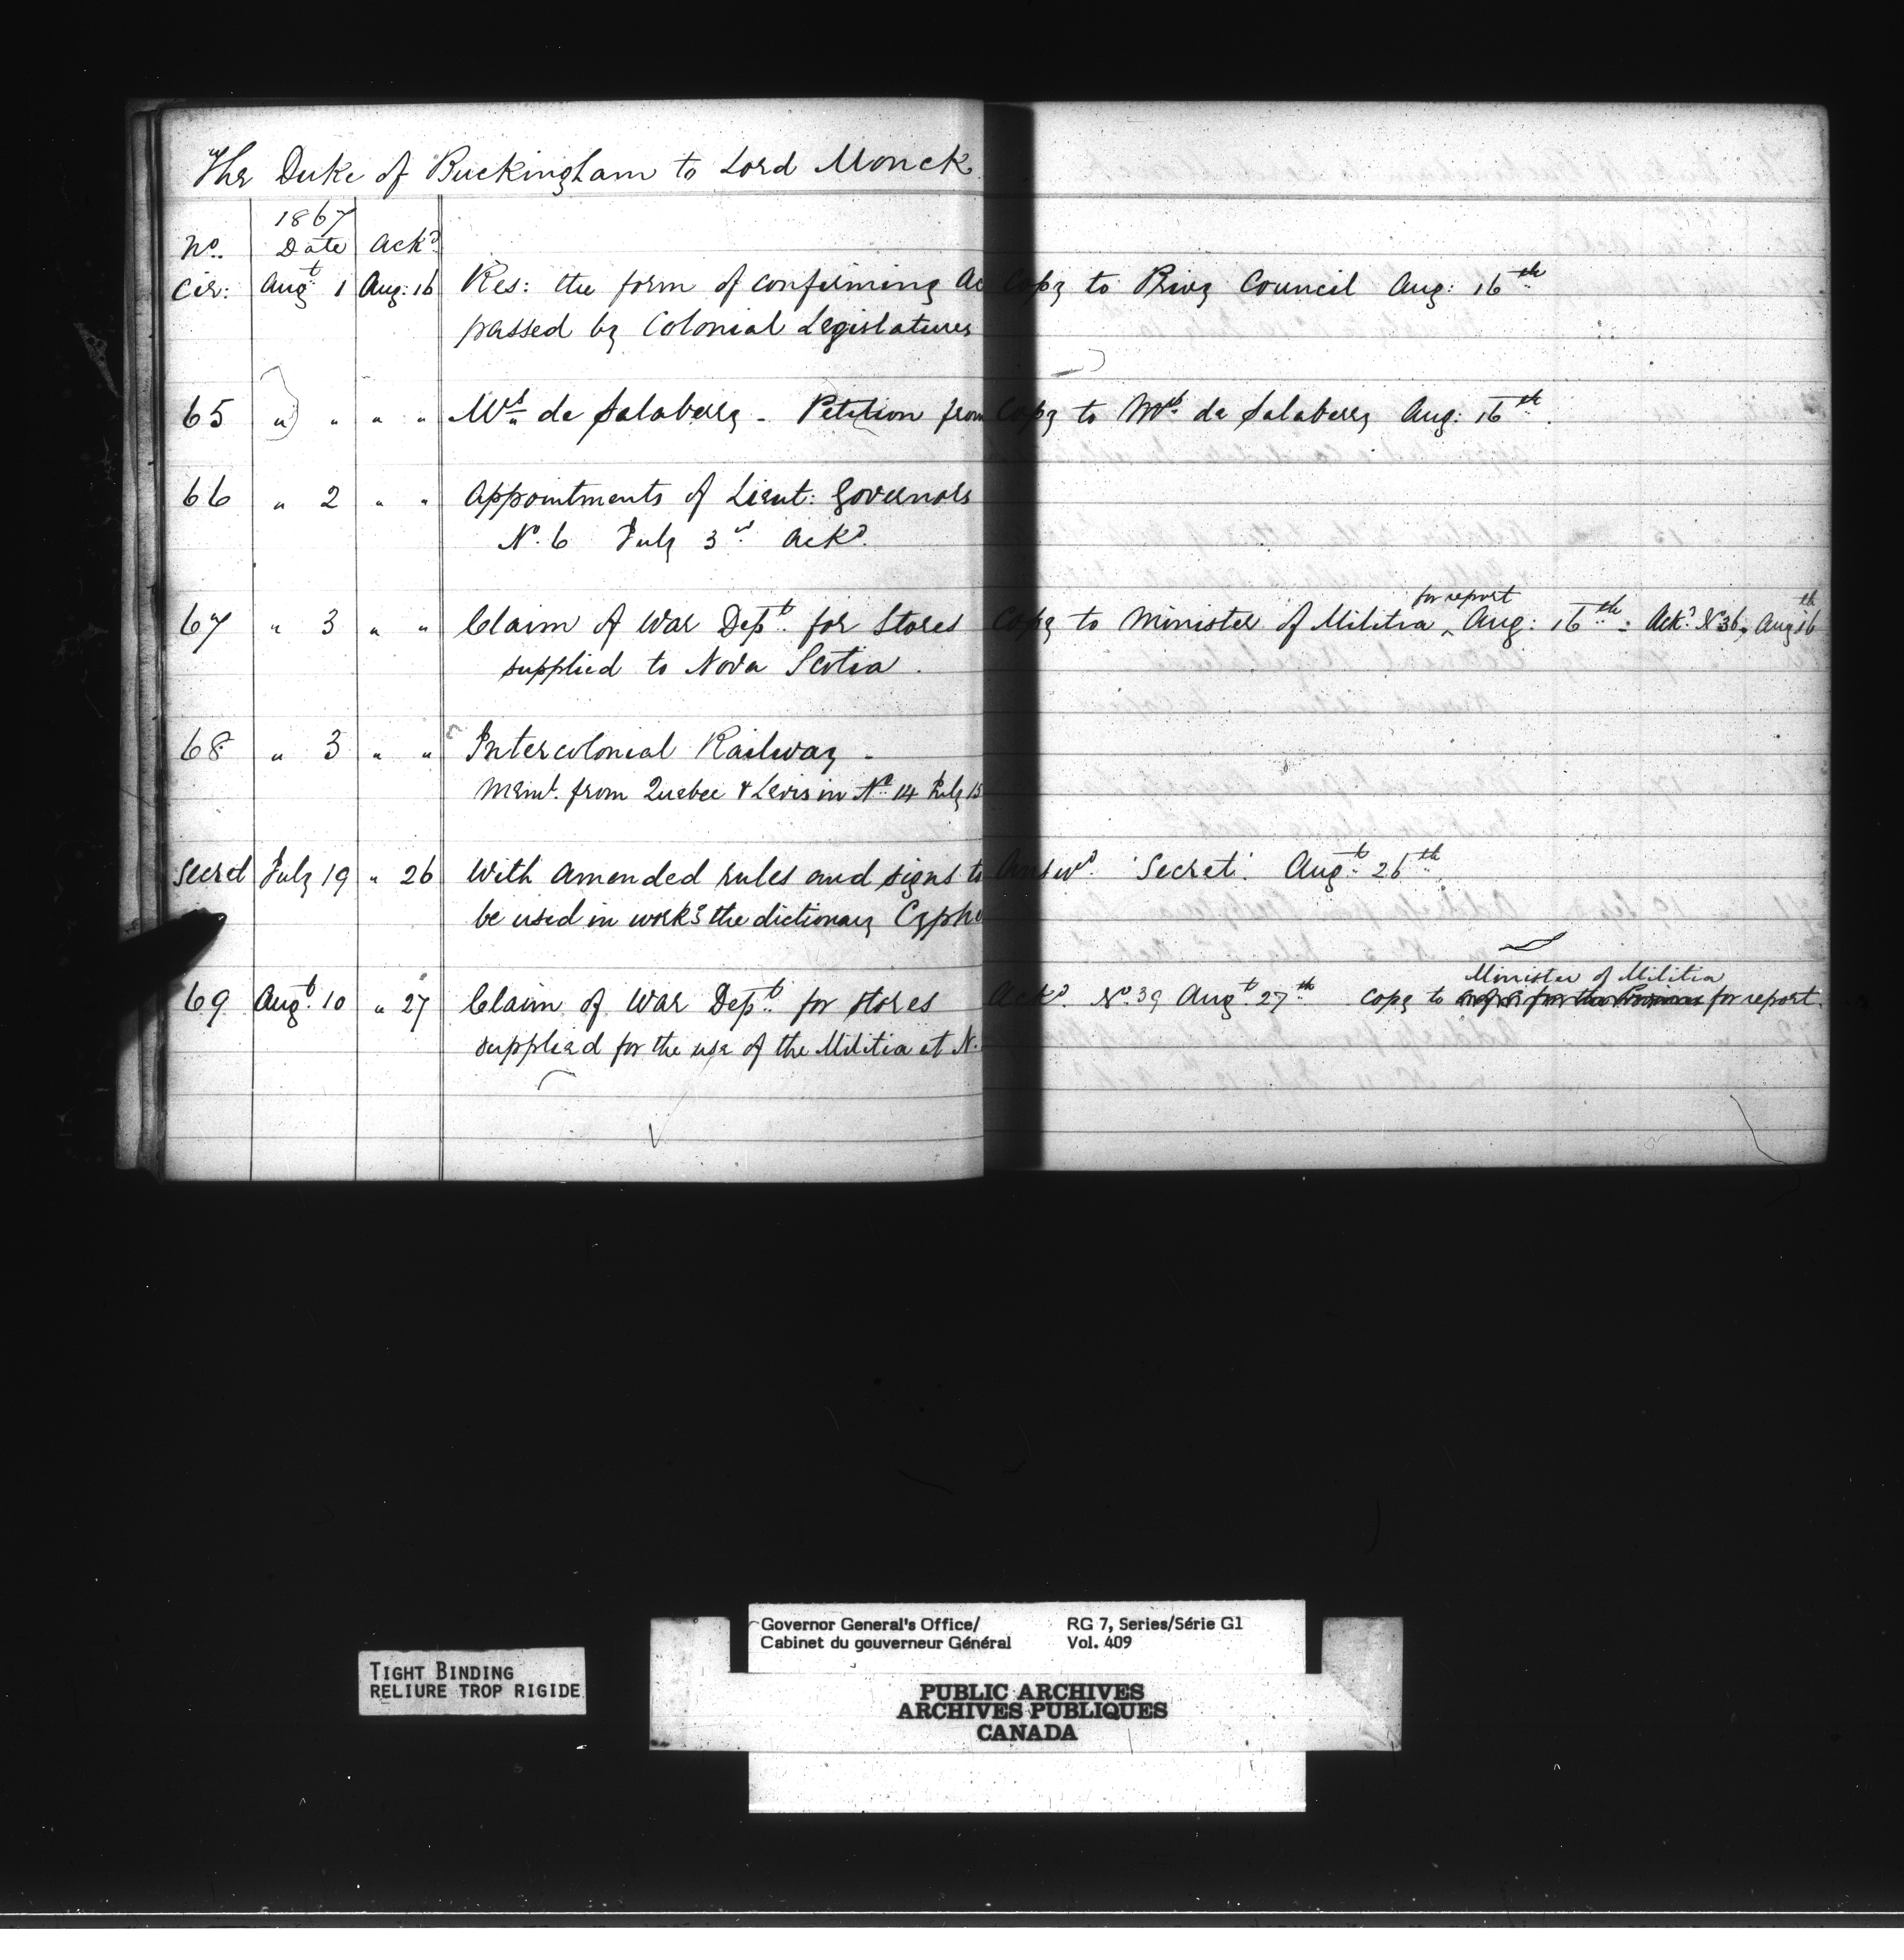 The Duke of Buckingham to Lord Monck
1867
No. Date Ackd.
Cir: Augt 1 Aug: 16 Res: the form of confirming Ac Copy to Privy Council Aug: 16th
passed by Colonial Legislatures
65 " " " " Mrs de Salaberry - Petition from Copy to Mrs. de Salaberry Aug: 16th.
66 " 2 " " Appointments of Lieut: Governors
N. 6 July 3rd Ackd.
for report
67 " 3 " " Claim of War Dept. for Stores Copy to Minister of Militia ^ Aug: 16th : Ackd. No 36, Aug 16th
supplied to Nova Scotia.
68 " 3 " " Intercolonial Railway -
Meml. from Quebec & Levis in No. 14 July 15
Secret July 19 " 26 With amended rules and signs to Answd. 'Secret'. Augt. 26th
be used in workg the dictionary Cyphe
Minister of Militia
69 Augt. 10 " 27 Claim of War Dept. for stores Ackd. No. 39 Augt 27th Copy to for report.
supplied for the use of the Militia at N.
TIGHT BINDING
RELIURE TROP RIGIDE
Governor General's Office/ RG 7, Series/Série G1
Cabinet du gouverneur Général Vol. 409
PUBLIC ARCHIVES
ARCHIVES PUBLIQUES
CANADA